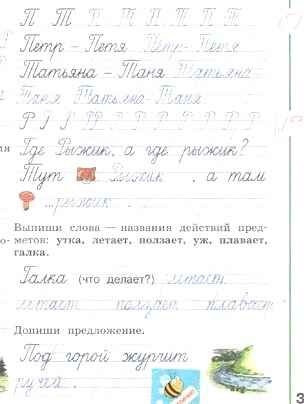 П Т П Т П Т П Т
Петр – Петя Петр – Петя
Татьяна – Таня Татьяна –
Таня Татьяна – Таня
Где Рыжик, а где рыжик?
Тут Рыжик, а там
...рыжик...
Выпиши слова — названия действий пред-
метов: утка, летает, ползает, уж, плавает,
галка.
Галка (что делает?) летает
летает ползает плавает
Допиши предложение.
Под горой журчит
ручей.
3